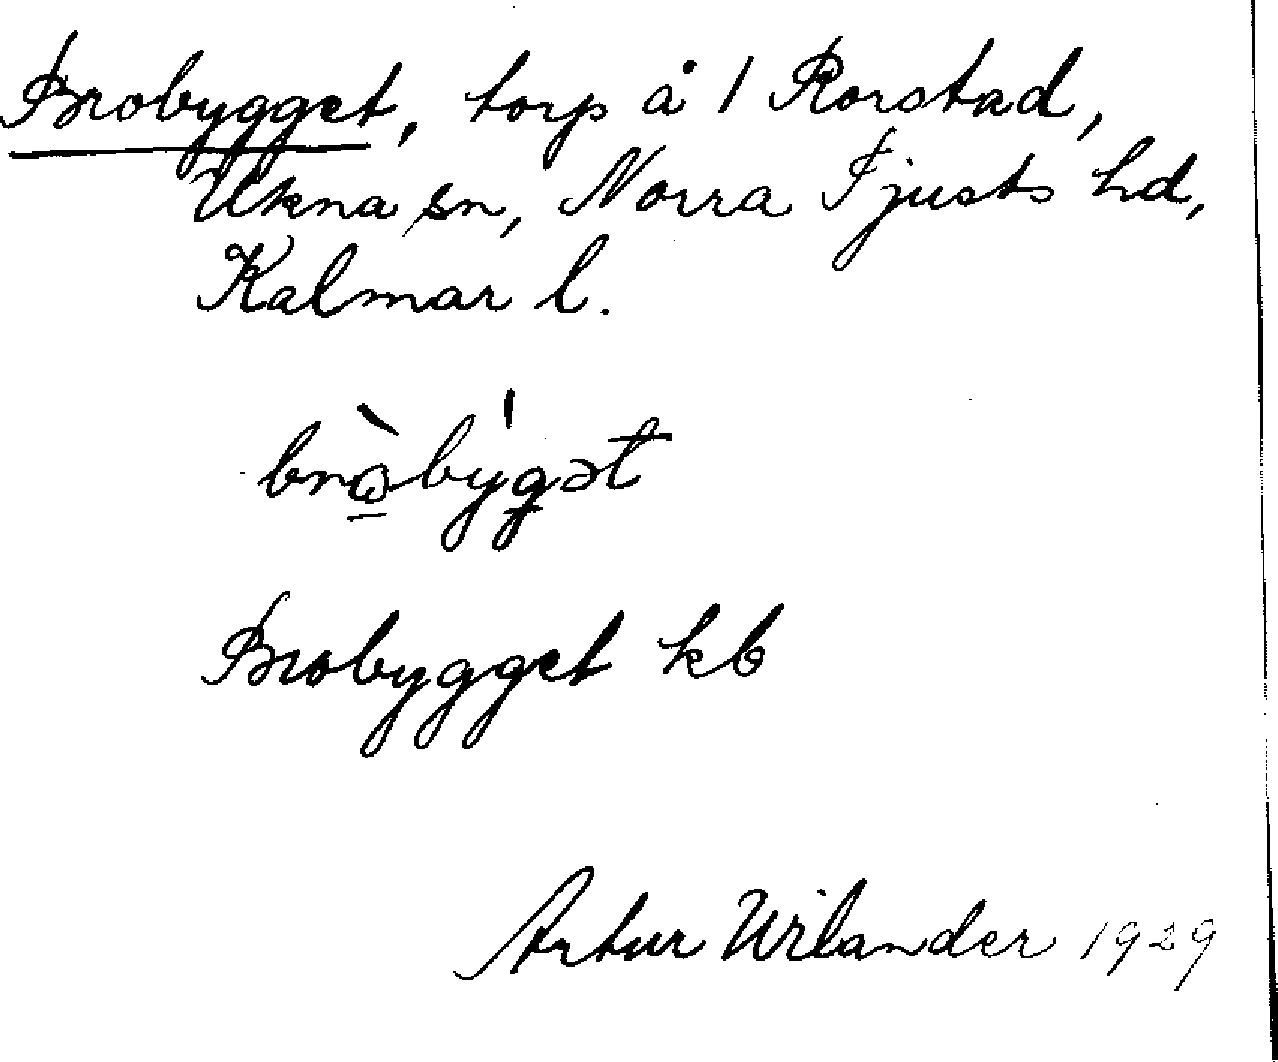 Brobygget, torp å 1 Rorstad,
Ukna sn, Norra Tjusts hd,
Kalmar l.
bròbýgət
Brobygget kb
Artur Wilander 1929